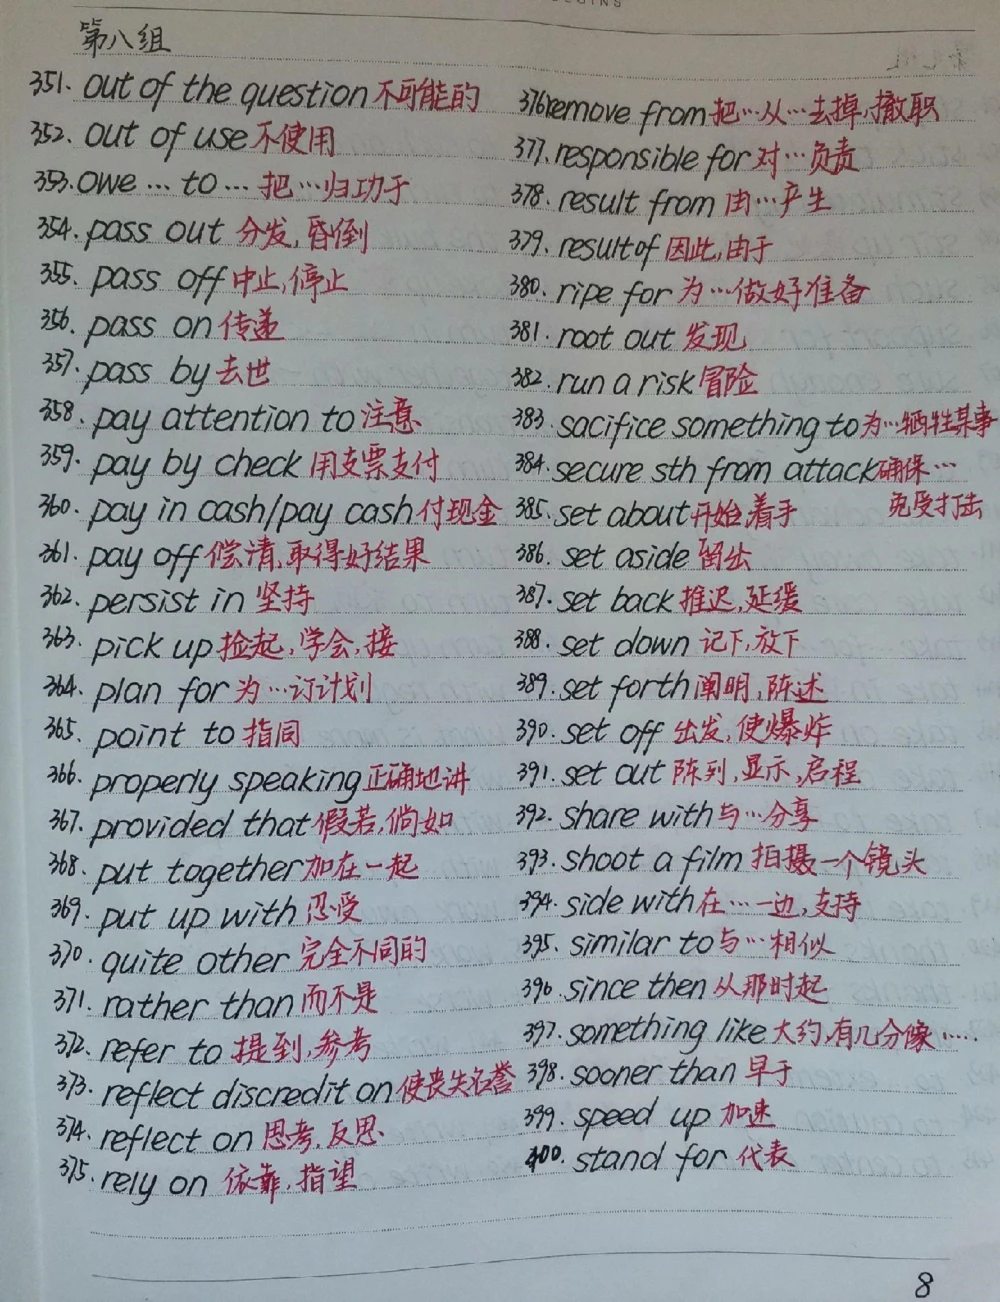 第八组
351. out of the question 不可能的
352. out of use 不使用
353. owe … to … 把…归功于
354. pass out 分发,昏倒
355. pass off 中止,停止
356. pass on 传递
357. pass by 去世
358. pay attention to 注意
359. pay by check 用支票支付
360. pay in cash/pay cash 付现金
361. pay off 偿清,取得好结果
362. persist in 坚持
363. pick up 捡起,学会,接
364. plan for 为…订计划
365. point to 指向
366. properly speaking 正确地讲
367. provided that 假若,倘如
368. put together 加在一起
369. put up with 忍受
370. quite other 完全不同的
371. rather than 而不是
372. refer to 提到,参考
373. reflect discredit on 使丧失名誉
374. reflect on 思考,反思
375. rely on 依靠,指望
376. remove from 把…从…去掉,撤职
377. responsible for 对…负责
378. result from 由…产生
379. result of 因此,由于
380. ripe for 为…做好准备
381. root out 发现
382. run a risk 冒险
383. sacifice something to 为…牺牲某事
384. secure sth from attack 确保…
免受打击
385. set about 开始,着手
386. set aside 留出
387. set back 推迟,延缓
388. set down 记下,放下
389. set forth 阐明,陈述
390. set off 出发,使爆炸
391. set out 陈列,显示,启程
392. share with 与…分享
393. shoot a film 拍摄一个镜头
394. side with 在…一边,支持
395. similar to 与…相似
396. since then 从那时起
397. something like 大约,有几分像……
398. sooner than 早于
399. speed up 加速
400. stand for 代表
8